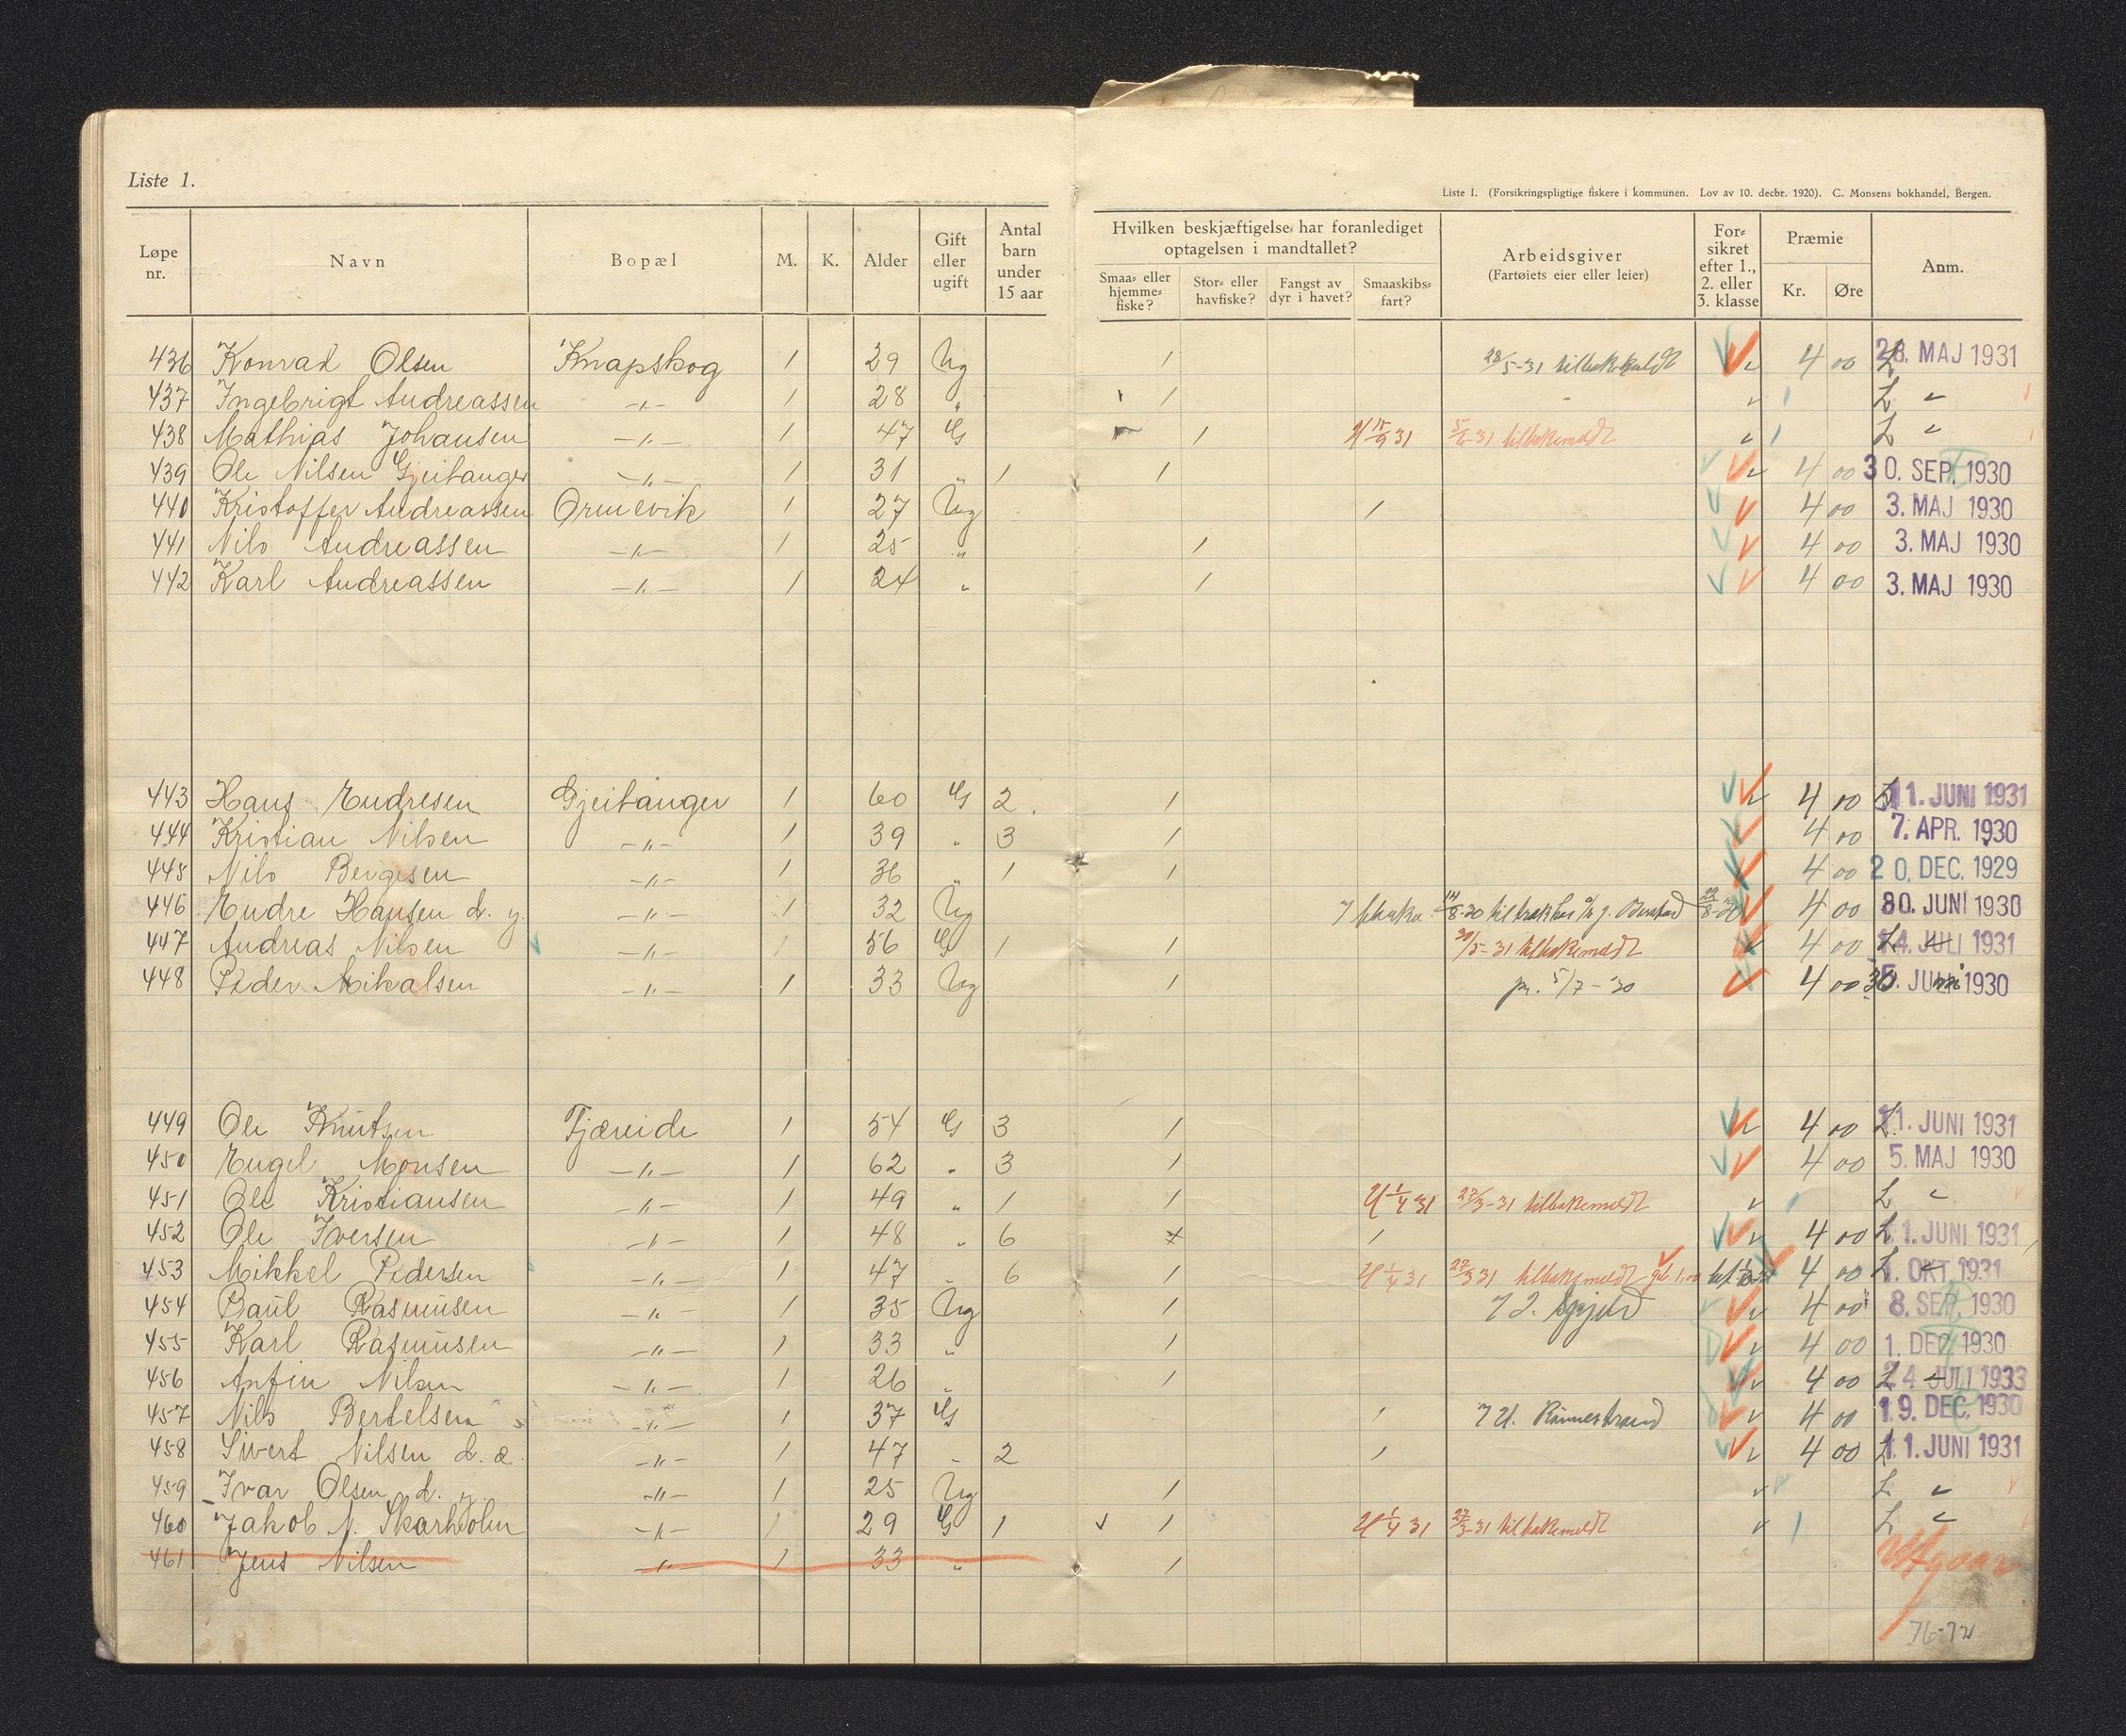 Liste 1.
Liste I. (Forsikringspligtige fiskere i kommunen. Lov av 10. decbr. 1920). C. Monsens bokhandel, Bergen.
Løpe nr. Navn Bopæl M. K. Alder Gift eller ugift Antal barn under 15 aar Hvilken beskjæftigelse har foranlediget optagelsen i mandtallet? Smaa- eller hjemme-fiske? Stor- eller havfiske? Fangst av dyr i havet? Smaaskibs-fart? Arbeidsgiver (Fartøiets eier eller leier) For-sikret efter 1., 2. eller 3. klasse Præmie Kr. Øre Anm.
436 Konrad Olsen Knapskog 1 29 Ug 1 28/5-31 4 00 28. MAJ 1931
437 Ingebrigt Andreassen -"- 1 28 " 1 L
438 Mathias Johansen -"- 1 47 G 1 31 5/6-31 tilbakemeldt L
439 Ole Nilsen Gjeitanger -"- 1 31 " 1 1 4 00 30. SEP. 1930
440 Kristoffer Andreassen Ormevik 1 27 Ug 1 4 00 3. MAJ 1930
441 Nils Andreassen -"- 1 25 " 1 4 00 3. MAJ 1930
442 Karl Andreassen -"- 1 24 " 1 4 00 3. MAJ 1930
443 Hans Endresen Gjeitanger 1 60 G 2 1 4 00 11. JUNI 1931
444 Kristian Nilsen -"- 1 39 " 3 1 4 00 7. APR. 1930
445 Nils Bergesen -"- 1 36 " 1 1 4 00 20. DEC. 1929
446 Endre Hansen d. y. -"- 1 32 Ug 4 00 30. JUNI 1930
447 Andreas Nilsen -"- 1 56 G 1 1 30/5-31 tilbakemeldt 4 00 L 14. JULI 1931
448 Peder Mikalsen -"- 1 33 Ug 1 5/7-30 4 00 1930
449 Ole Knutsen Tjæreide 1 54 G 3 1 4 00 L 11. JUNI 1931
450 Engel Monsen -"- 1 62 " 3 1 4 00 5. MAJ 1930
451 Ole Kristiansen -"- 1 49 " 1 1 U 1/4 31 27/3-31 tilbakemeldt L
452 Ole Iversen -"- 1 48 " 6 1 4 00 L 11. JUNI 1931
453 Mikkel Pedersen -"- 1 47 " 6 1 U 1/4 31 27/3 31 tilbakemeldt 4 00 L 1. OKT 1931
454 Paul Rasmusen -"- 1 35 Ug 1 4 00 8. SEP. 1930
455 Karl Rasmusen -"- 1 33 " 1 4 00 1. DEC. 1930
456 Anfin Nilsen -"- 1 26 " 1 4 00 L 24 JULI 1933
457 Nils Bertelsen -"- 1 37 G 1 4 00 19. DEC. 1930
458 Sivert Nilsen d. æ. -"- 1 47 " 2 1 4 00 11. JUNI 1931
459 Ivar Olsen d. y. -"- 1 25 Ug 1 L
460 Jakob N. Skarholm -"- 1 29 G 1 1 U 1/4 31 27/3-31 tilbakemeldt L
461 Jens Nilsen -"- 1 33 " 1 utgaar